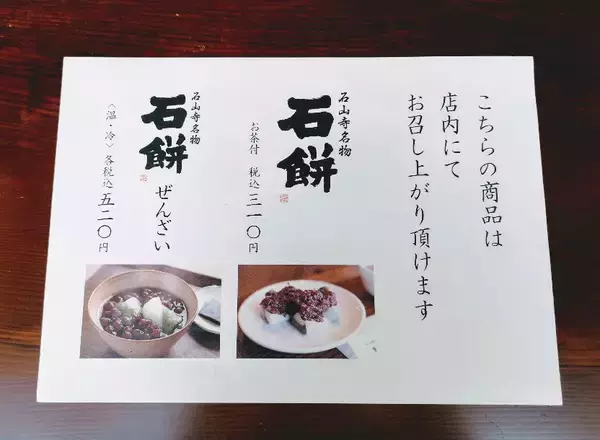 こちらの商品は
店内にて
お召し上がり頂けます
石山寺名物
石餅
お茶付 税込三一〇円
石山寺名物
石餅 ぜんざい
〈温・冷〉各税込五二〇円